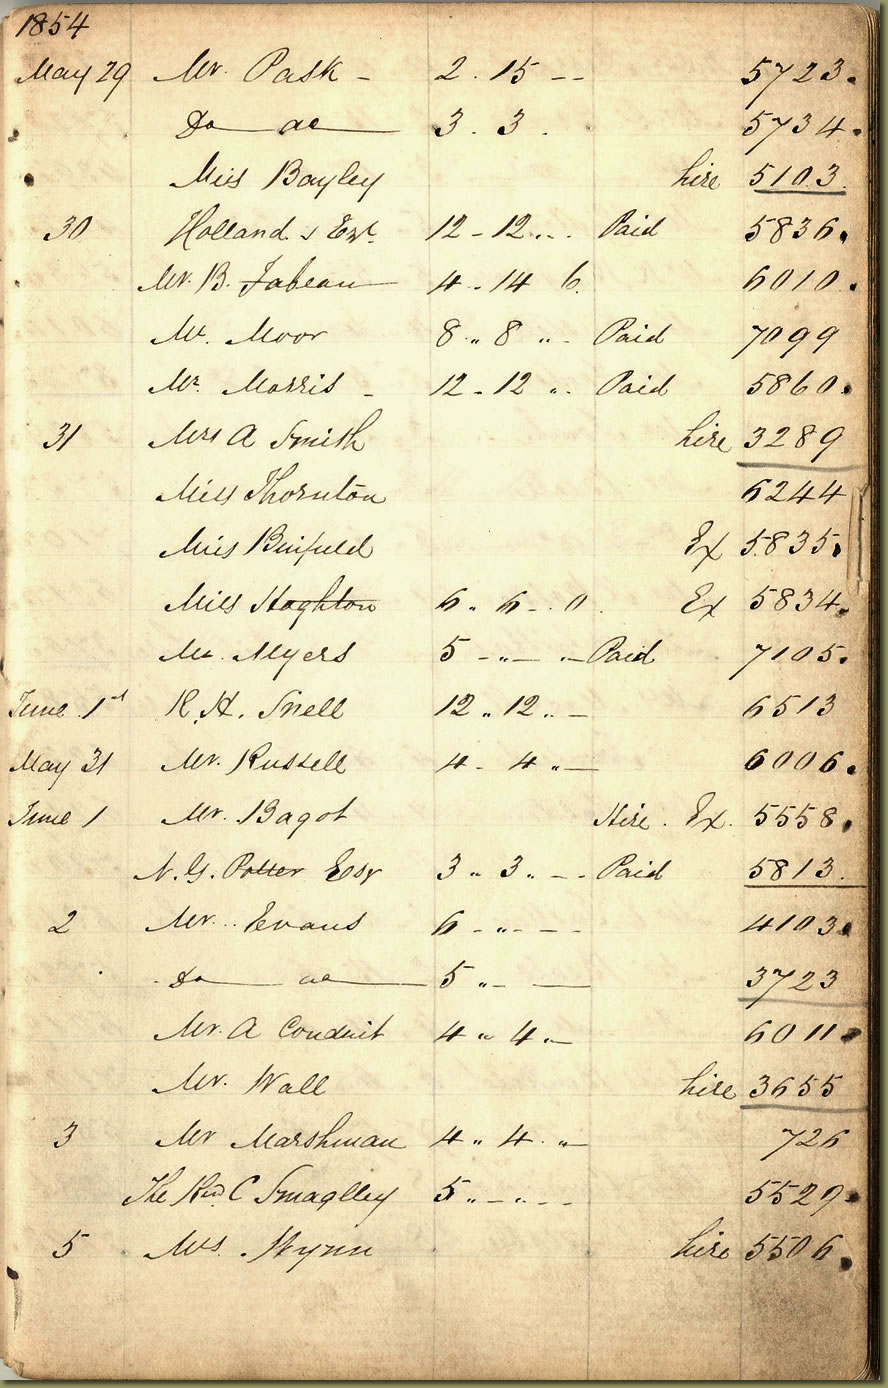 1854
May 29 Mr. Pask - 2 . 15 -- 5723.
Do do 3 . 3 . 5734.
Miss Bayley hire 5103.
30 Holland & Esqr. 12 - 12 ,, - Paid 5836.
Mr. B. Jabeau 4 - 14 6. 6010.
Mr. Moor 8 ,, 8 ,, - Paid 7099
Mr. Morris - 12 - 12 ,, - Paid 5860.
31 Mrs A Smith hire 3289
Miss Thornton 6244
Miss Binfield Ex 5835.
Miss Haghton 6 ,, 6 - . 0 . Ex 5834.
Mr. Myers 5 - ,, — ,, - Paid 7105.
June 1st R. H. Snell 12 ,, 12 ,, - 6513
May 31 Mr. Russell 4 - 4 ,, — 6006.
June 1 Mr. Bagot Hire . Ex. 5558.
N. G. Potter Esqr 3 ,, 3 ,, -- Paid 5813.
2 Mr. Evans 6 - ,, - -- 4103.
Do do 5 ,, - — 3723
Mr. A Conduit 4 ,, 4 ,, — 6011.
Mr. Wall hire 3655
3 Mr Marshman 4 ,, 4 . ,, — 726
The Revd. C Smaglley 5 ,, - ,, -- 5529.
5 Mrs. Wynn hire 5506.